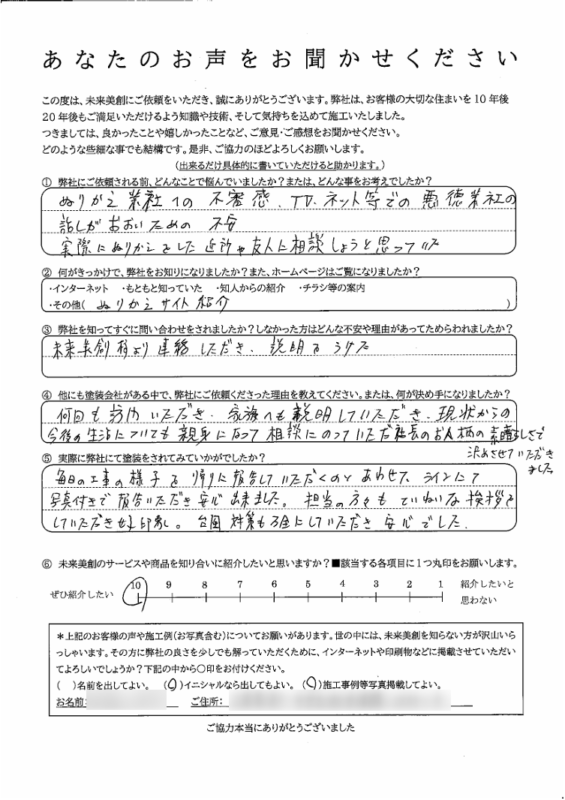 あなたのお声をお聞かせください
この度は、未来美創にご依頼をいただき、誠にありがとうございます。弊社は、お客様の大切な住まいを10年後
20年後もご満足いただけるよう知識や技術、そして気持ちを込めて施工いたしました。
つきましては、良かったことや嬉しかったことなど、ご意見・ご感想をお聞かせください。
どのような些細な事でも結構です。是非、ご協力のほどよろしくお願いします。
（出来るだけ具体的に書いていただけると助かります。）
① 弊社にご依頼される前、どんなことで悩んでいましたか？または、どんな事をお考えでしたか？
ぬりかえ業社への不審感、TV、ネット等での悪徳業社の
話しがおおいための不安
実際にぬりかえをした近所や友人に相談しようと思っていた
② 何がきっかけで、弊社をお知りになりましたか？また、ホームページはご覧になりましたか？
・インターネット ・もともと知っていた ・知人からの紹介 ・チラシ等の案内
・その他（ ぬりかえサイト紹介 ）
③ 弊社を知ってすぐに問い合わせをされましたか？しなかった方はどんな不安や理由があってためらわれましたか？
未来美創様より連絡いただき、説明をうけた
④ 他にも塗装会社がある中で、弊社にご依頼くださった理由を教えてください。または、何が決め手になりましたか？
何回も訪問いただき、家族へも説明していただき、現状からの
今後の生活についても親身になって相談にのっていただ社長のお人柄の素晴らしさで
決めさせていただき
ました。
⑤ 実際に弊社にて塗装をされてみていかがでしたか？
毎日の工事の様子を帰りに報告していただくのとあわせて、ラインにて
写真付きで報告いただき安心出来ました。担当の方々もていねいな挨拶を
していただき好印象。台風対策も万全にしていただき安心でした。
⑥ 未来美創のサービスや商品を知り合いに紹介したいと思いますか？■該当する各項目に1つ丸印をお願いします。
ぜひ紹介したい 10 9 8 7 6 5 4 3 2 1 紹介したいと
思わない
＊上記のお客様の声や施工例（お写真含む）についてお願いがあります。世の中には、未来美創を知らない方が沢山いら
っしゃいます。その方に弊社の良さを少しでも解っていただくために、インターネットや印刷物などに掲載させていただい
てよろしいでしょうか？下記の中から○印をお付けください。
（ ）名前を出してよい。（○）イニシャルなら出してもよい。（○）施工事例等写真掲載してよい。
お名前： ご住所：
ご協力本当にありがとうございました